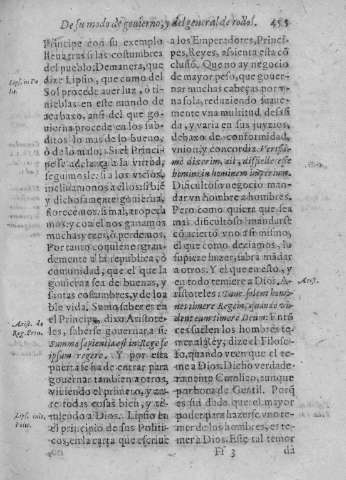 De su modo de gouierno, y del general de todos. 455
Principe con su exemplo
lleuar tras si las costumbres
del pueblo, De manera, que
dize Lipsio, que como del
Sol procede auer luz, ò ti-
nieblas en este mundo de
acabaxo, ansi del que go-
uierna procede en los sub-
ditos lo mas de lo bueno,
ò de lo malo, si el Princi
pe se adelanta a la virtud,
seguimosle: si a los vicios,
inclinamonos a ellos: si biẽ
y dichosamente gouierna,
florecemos: si mal, tropeça
mos: y con el nos ganamos
muchas vezes, ò perdemos.
Por tanto conuiene gran-
demente a la republica, ò
comunidad, que el que la
gouierna sea de buenas, y
santas costumbres, y de loa
ble vida. Sumo saber es en
el Principe, dixo Aristote-
les, saberse gouernar a si.
Summa sapientia est in Rege se
ipsum regere. Y por esta
puerta se ha de entrar para
gouernar tambien a otros,
viuiendo el primero, y an-
te todas cosas bien, y te-
miendo a Dios. Lipsio en
el principio de sus Politi-
cos, en la carta que escriue
a los Emperadores, Princi-
pes, Reyes, assienta esta cõ
clusiõ. Que no ay negocio
de mayor peso, que gouer-
nar muchas cabeças por v-
na sola, reduziendo suaue-
mente vna multitud desuni
da, y varia en sus juyzios,
debaxo de conformidad,
vnion, y concordia.
homini in hominem imperium.
Dificultoso negocio man-
dar vn hombre a hombres.
Pero como quiera que sea
mas dificultoso mandarse
cõ acierto vno a si mismo,
el que como deziamos, su-
supieze hazer, sabra mãdar
a otros. Y el que en esto, y
en todo temiere a Dios,
Aristoteles:
res suelen los hombres te-
mer al Rey, dize el Filoso-
fo, quando veen que el te-
me a Dios. Dicho verdade-
ramente Catolico, aunque
por boca de Gentil. Porq̃
es sin duda que el mayor
poder para hazerse vno te-
mer de los hombres, es te-
mer a Dios. Este tal temor
Ff 3 da
Aristo.
Arist.
Arist. de
Reg. Prin.